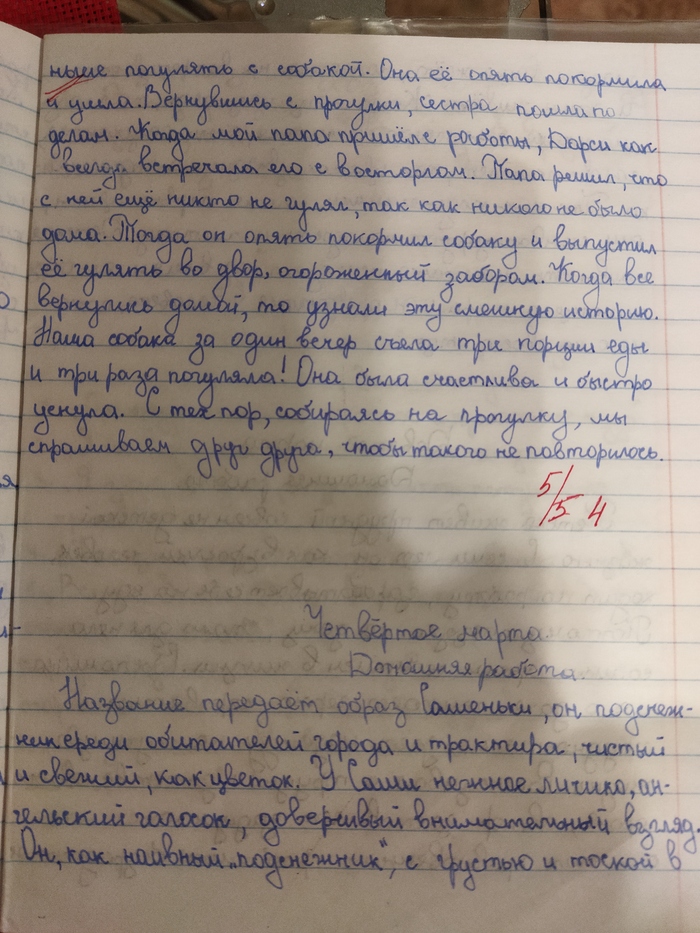 ньше погулять с собакой. Она её опять покормила
и ушла. Вернувшись с прогулки, сестра пошла по
делам. Когда мой папа пришёл с работы, Дарси как
всегда встречала его с восторгом. Папа решил, что
с ней ещё никто не гулял, так как никого не было
дома. Тогда он опять покормил собаку и выпустил
её гулять во двор, огороженный забором. Когда все
вернулись домой, то узнали эту смешную историю.
Наша собака за один вечер съела три порции еды
и три раза погуляла! Она была счастлива и быстро
уснула. С тех пор, собираясь на прогулку, мы
спрашиваем друг друга, чтобы такого не повторилось.
5/5 4
Четвёртое марта.
Домашняя работа.
Название передаёт образ Сашеньки, он подснеж-
ник среди обитателей города и трактира, чистый
и свежий, как цветок. У Саши нежное личико, ан-
гельский голосок, доверчивый внимательный взгляд.
Он, как наивный „подснежник", с грустью и тоской в